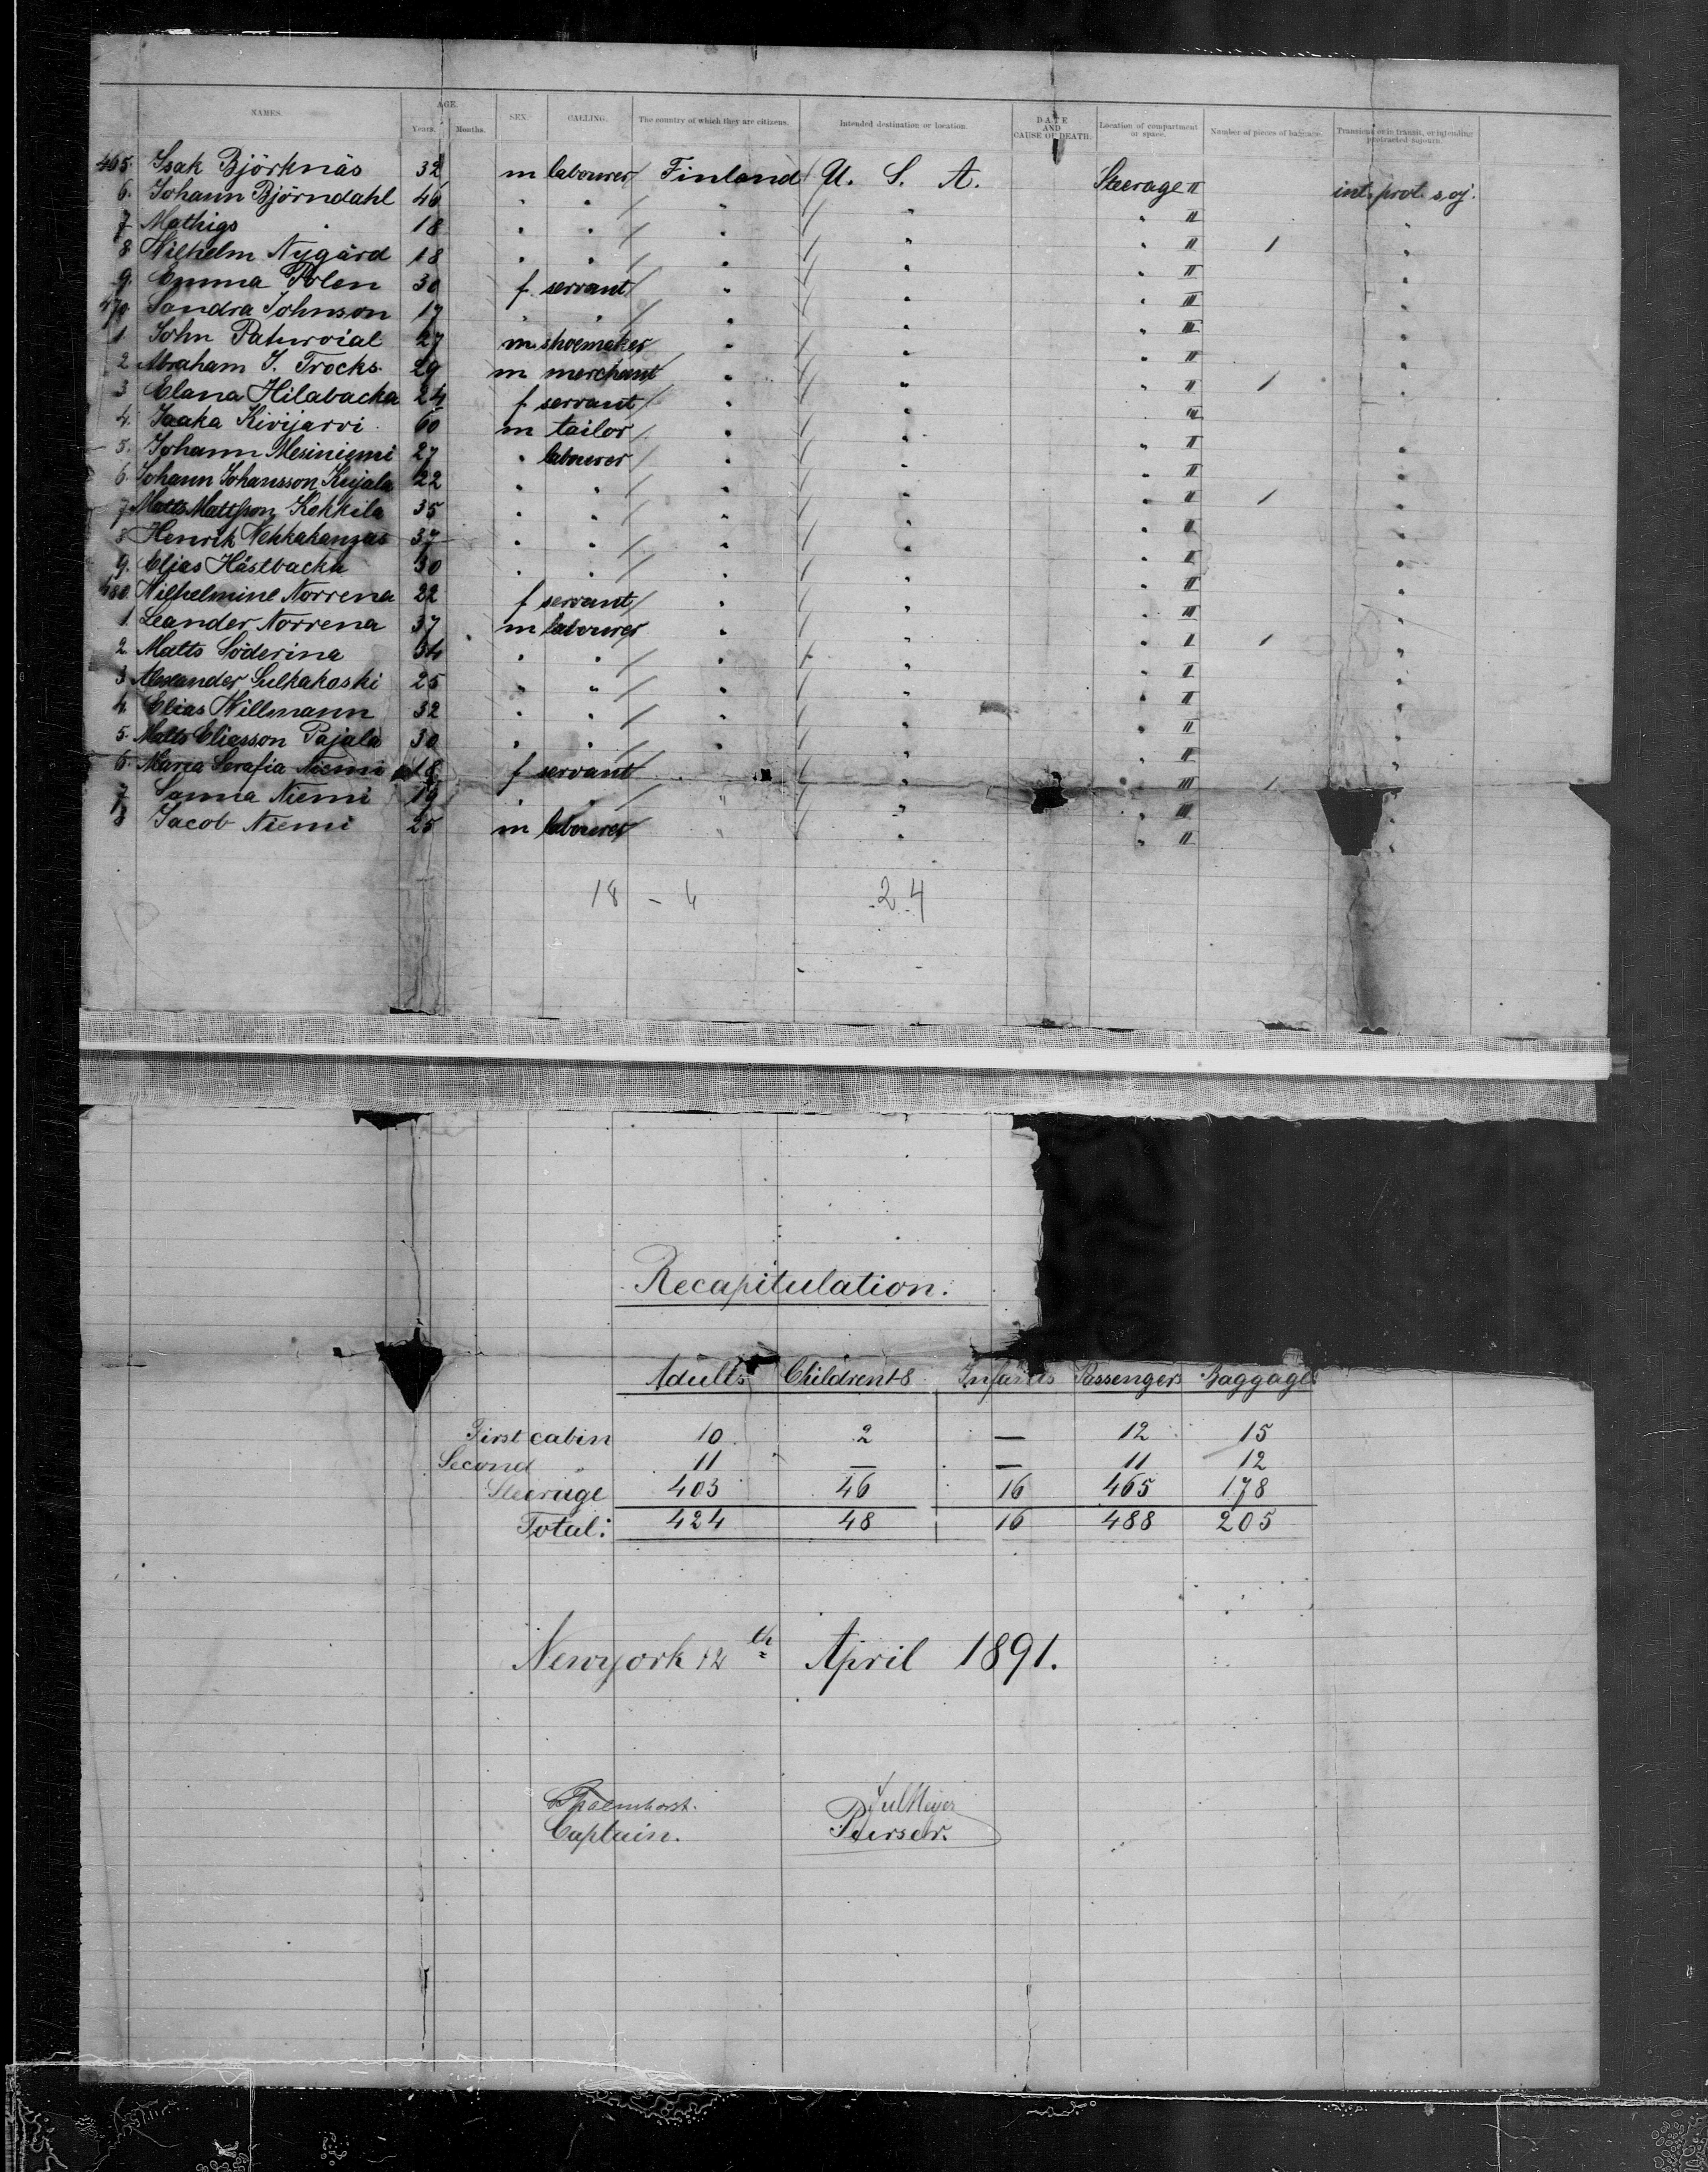 NAMES. AGE. Years. Months. SEX. CALLING. The country of which they are citizens. Intended destination or location. DATE AND CAUSE OF DEATH. Location of compartment or space. Number of pieces of baggage. Transient or in transit, or intending protracted sojourn.
465. Isak Björknäs 32 m labourer Finland U. S. A. Steerage II int. prot. soj.
6. Johann Björndahl 46 " " " " " II "
7 Mathigs " 18 " " " " " II 1 "
8 Wilhelm Nygård 18 " " " " " II "
9. Emma Polen 30 f servant " " " III "
470 Sandra Johnson 17 " " " " " III "
1 John Paturoial 27 m shoemaker " " " II "
2 Abraham J. Trocks. 29 m merchant " " " II 1 "
3 Elana Hilabacka 24 f servant " " " III
4. Jaaka Kivijarvi 60 m tailor " " " II "
5. Johann Mesiniemi 27 " labourer " " " II "
6. Johann Johansson Kujala 22 " " " " " II 1 "
7 Matts Mattsson Kekkila 35 " " " " " II "
8 Henrik Nehkakangas 37 " " " " " II "
9. Elias Hästbacka 30 " " " " " II "
480. Wilhelmine Norrena 22 f servant " " " III "
1. Leander Norrena 37 m labourer " " " II 1 "
2 Matts Söderina 34 " " " " " II "
3 Alexander Sulkakoski 25 " " " " " II "
4. Elias Willmann 32 " " " " " II "
5. Matts Eliasson Pajala 30 " " " " " II "
6. Maria Serafia Niemi 18 f servant " " III 1
7 Sanna Niemi 19 " " " " " III
8 Jacob Niemi 25 m labourer " " " II "
18 - 6 24
Recapitulation.
Adults Children 1-8 Infants Passengers Baggage
First cabin 10 2 — 12 15
Second " 11 — — 11 12
Steerage 403 46 16 465 178
Total: 424 48 16 488 205
Newyork 12th April 1891.
Jul Meyer
Captain. Purser.